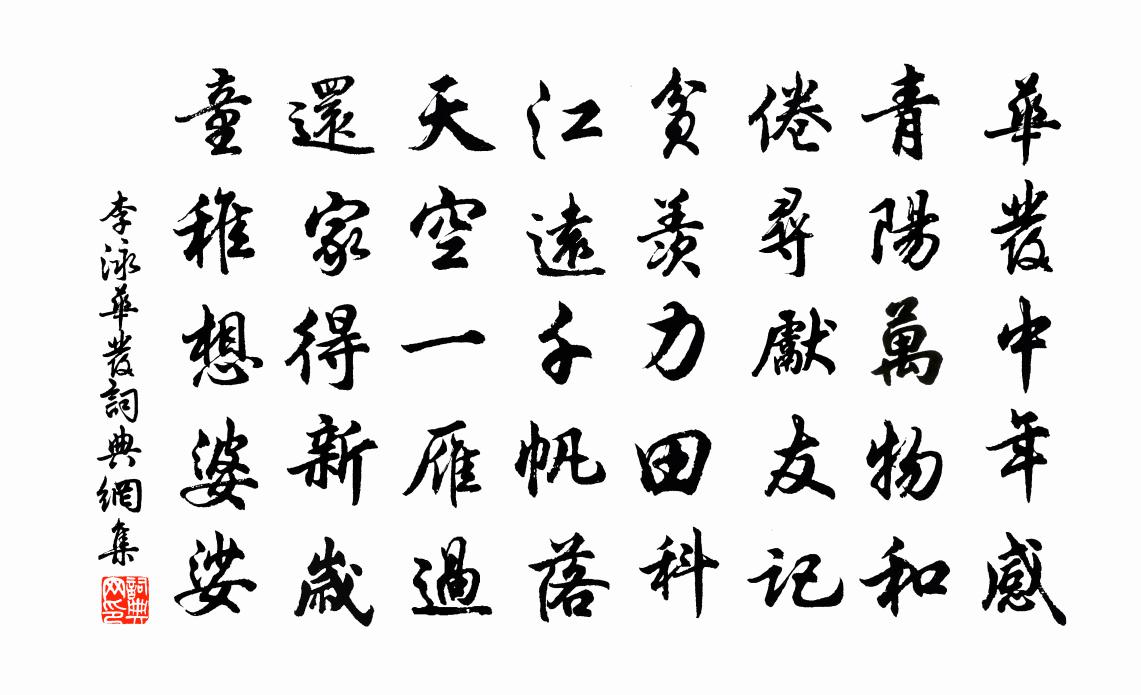 華發中年感
青陽萬物和
倦尋獻友記
貧羨力田科
江遠千帆落
天空一雁過
還家得新歲
童稚想婆娑
李泳華發詞典網集
詞典网印